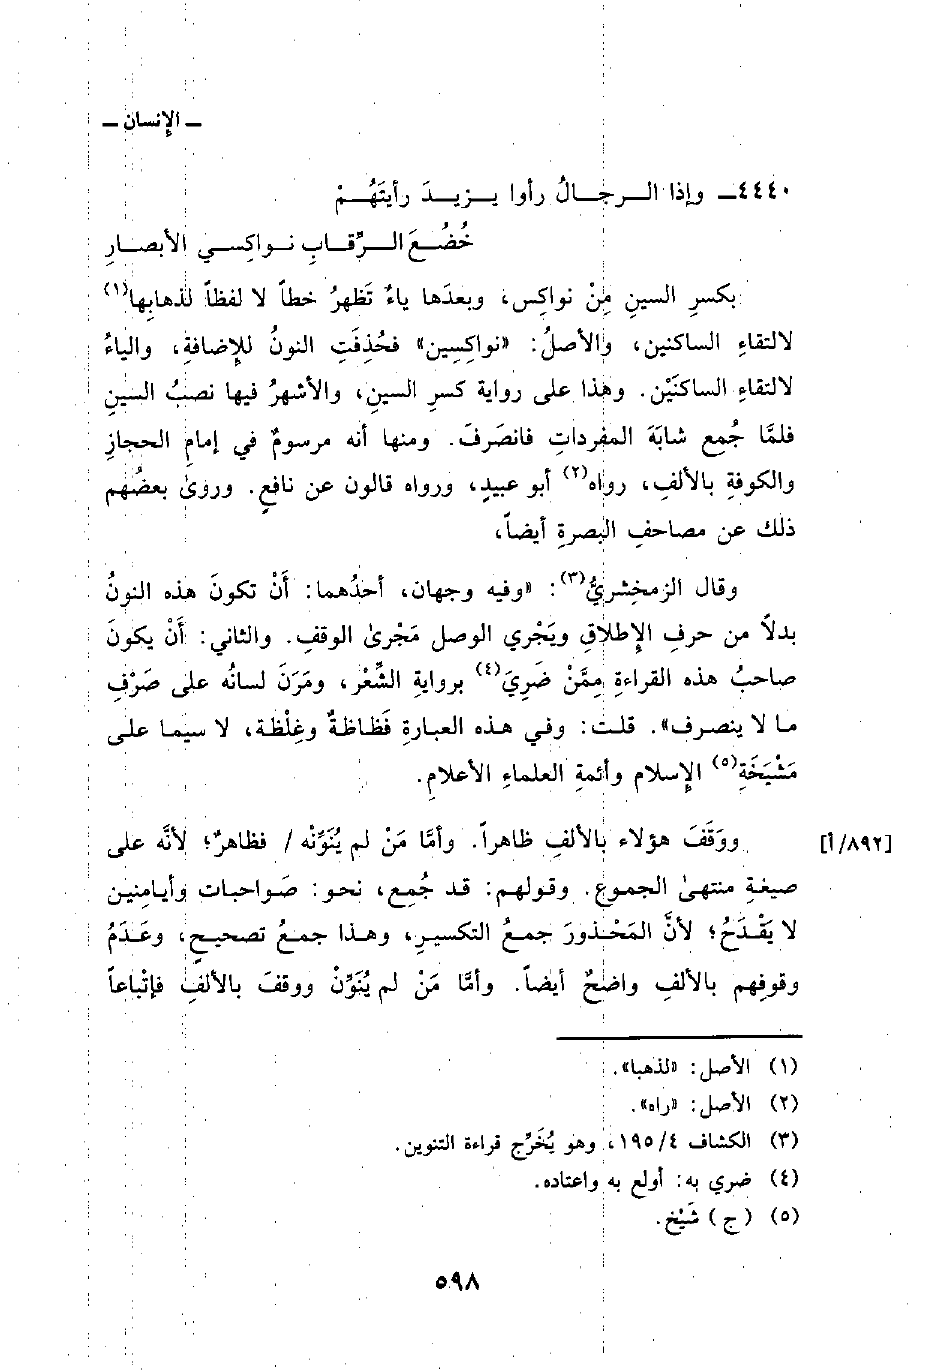 ـ الإنسان ـ
٤٤٤٠ـ وإذا الـرجـالُ رأوا يـزيـدَ رأيتَهُـمْ
خُضُعَ الـرِّقـابِ نـواكِسـي الأبصـارِ
بكسرِ السينِ مِنْ نواكِس، وبعدَها ياءٌ تَظهرُ خطاً لا لفظاً لذهابِها(١)
لالتقاءِ الساكنين، والأصلُ: «نواكِسِين» فحُذِفَتِ النونُ للإِضافةِ، والياءُ
لالتقاءِ الساكنَيْن. وهذا على رواية كسرِ السينِ، والأشهرُ فيها نصبُ السينِ
فلمَّا جُمِع شابَهَ المفرداتِ فانصَرفَ. ومنها أنه مرسومٌ في إمامِ الحجازِ
والكوفةِ بالألفِ، رواه(٢) أبو عبيدٍ، ورواه قالون عن نافعٍ. وروىٰ بعضُهم
ذلك عن مصاحفِ البصرةِ أيضاً،
وقال الزمخشريُّ(٣): «وفيه وجهان، أحدُهما: أَنْ تكونَ هذه النونُ
بدلاً من حرفِ الإِطلاقِ ويَجْري الوصل مَجْرىٰ الوقفِ. والثاني: أَنْ يكونَ
صاحبُ هذه القراءةِ مِمَّنْ ضَرِيَ(٤) بروايةِ الشِّعْر، ومَرَنَ لسانُه على صَرْفِ
ما لا ينصرف». قلت: وفي هذه العبارةِ فَظاظةٌ وغِلْظة، لا سيما على
مَشْيَخَةِ(٥) الإِسلام وأئمةِ العلماءِ الأعلامِ.
ووَقَفَ هؤلاء بالألفِ ظاهراً. وأمَّا مَنْ لم يُنَوِّنْه / فظاهرٌ؛ لأنَّه على [٨٩٢/أ]
صيغةِ منتهىٰ الجموع. وقولُهم: قد جُمِع، نحو: صَواحبات وأيامِنين
لا يَقْدَحُ؛ لأنَّ المَحْذورَ جمعُ التكسيرِ، وهذا جمعُ تصحيحٍ، وعَدَمُ
وقوفِهم بالألفِ واضحٌ أيضاً. وأمَّا مَنْ لم يُنَوِّنْ ووقفَ بالألفِ فإتْباعاً
(١) الأصل: «لذهبا».
(٢) الأصل: «راه».
(٣) الكشاف ١٩٥/٤، وهو يُخَرِّج قراءة التنوين.
(٤) ضري به: أولع به واعتاده.
(٥) (ج) شَيْخ.
٥٩٨